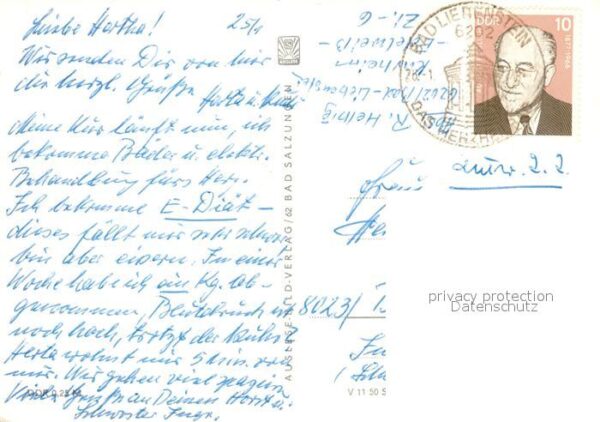 Liebe Hertha! 25/1
Wir senden Dir von hier
die herzl. Grüße Herta u.
Meine Kur läuft nun, ich
bekomme Bäder u. elektr.
Behandlung fürs Herz.
Ich bekomme E-Diät-
dieses fällt mir sehr schwer
bin aber eisern. In einer
Woche habe ich ein Kg. ab-
genommen, Blutdruck ist
noch hoch, trotz der Ruhe?
Herta wohnt nur 5 Min. von
mir. Wir gehen viel spazieren
Viele Grüße an Deinen Horst u.
Schwester Inge.
DDR 0,25 M
AUSLESE-BILD-VERLAG/62 BAD SALZUNGEN
V 11 50
R. Helbig
6202 Bad-Liebenstein
Kurheim
-Edelweiß-
Zi.-6
BAD LIEBENSTEIN
6202
DAS HERZHEI
DDR
10
1877-1966
Frau
8023/
privacy protection
Datenschutz